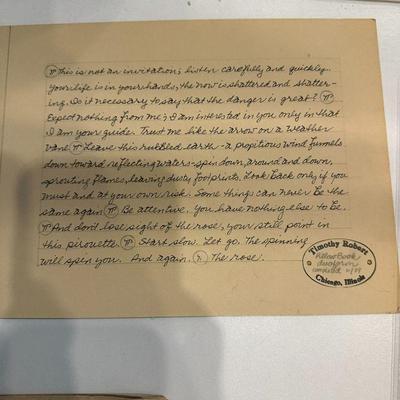 Ⓟ This is not an invitation; listen carefully and quickly.
Your life is in your hands; the now is shattered and shatter-
ing. Is it necessary to say that the danger is great? Ⓟ
Expect nothing from me; I am interested in you only in that
I am your guide. Trust me like the arrow on a weather
vane Ⓟ Leave this rubbled earth - a propitious wind funnels
down toward reflecting waters - spin down, around and down,
sprouting flames, leaving dusty footprints. Look back only if you
must and at your own risk. Some things can never be the
same again Ⓟ Be attentive. You have nothing else to be.
Ⓟ And don't lose sight of the rose, your still point in
this pirouette. Ⓟ Start slow. Let go. The spinning
will spin you. And again. The rose.
Timothy Robert
Yellow Book
Chicago, Illinois